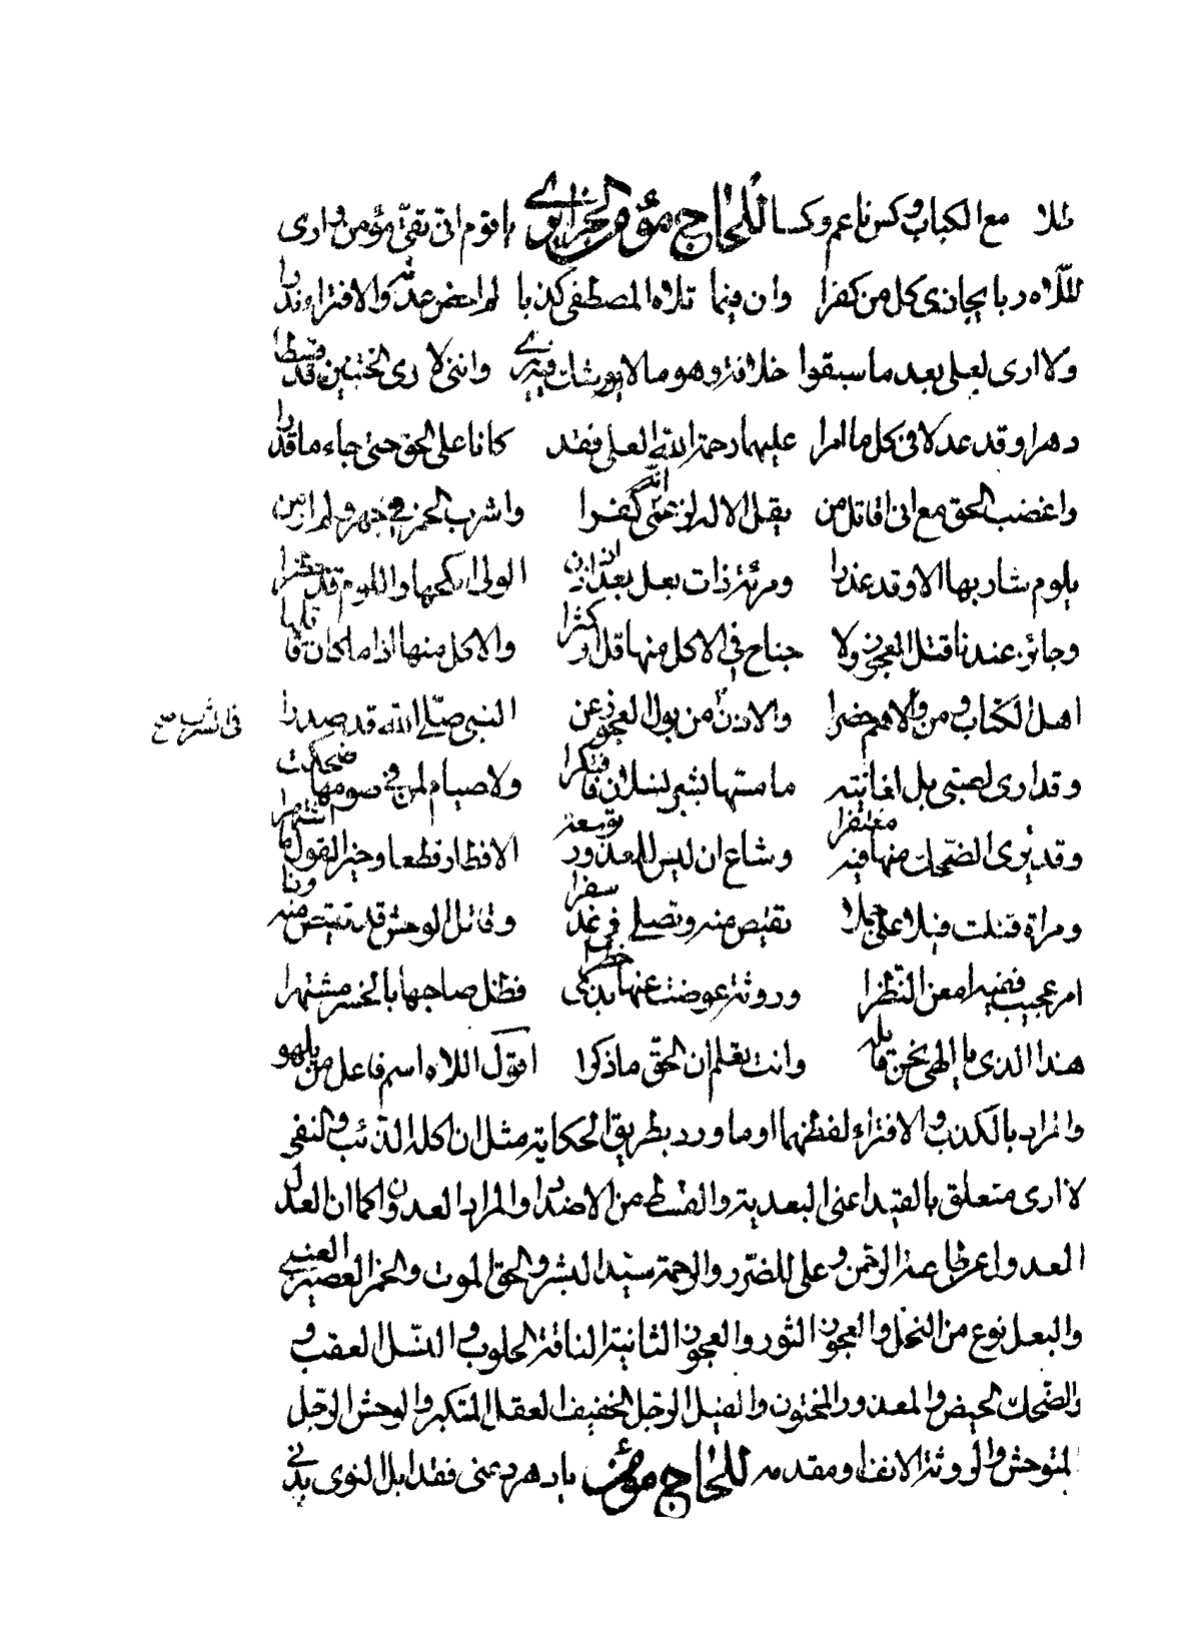 طلا مع الكباب وكس ناعم وكسا للحاج مؤمن الجزايري يا قوم اني تقي مؤمن وارى
للاه ربا يجازي كل من كفرا وان فيما تلاه المصطفى كذبا لم امض عنه والافترا
ولا ارى لعلي بعد ما سبقوا خلافة وهو مالا يورثان فيه وانني لا ارى قد قسطا
دهرا وقد عدلا في كل ما امرا عليهما رحمة الله العلي فقد كانا على الحق حتى جاء ما قدرا
واغضب الحق مع اني اقاتل من يقل الاله كفرا واشرب الخمر في جهر ولم ار من
يلوم شاربها الا وقد عذرا ذات بعل بعد ان الولي واللوم قد
وجائز عندنا قتل العجوز ولا جناح في الاكل منها قل او كثرا والاكل منها اذا ما كان
اهل الكتاب ومن والاهم حضرا والاذن من بول العجوز عن النبي صلى الله قد صدرا
في الشرب صح
وقد ارى لصبي بل لغانية ما مسها بشر نسلان فافتكرا ولا صيام لمن في صومها ضحكت
وقد يرى الضحك منها فيه مغتفرا وشاع ان ليس للمعذور توسعة الافطار قطعا وخير القول ما اشتهرا
ومراة قتلت فيلا على تقتص منه وتصلي في غد سقرا وقاتل الوحش قد تقتص منه
امر عجيب ففيه امعن النظرا وروثة عوضت عنها فظل صاحبها بالخسر مشتهرا
هذا الذي يا الهي نحن قايله وانت تعلم ان الحق ما ذكرا اقول اللاه اسم فاعل من يلهو
والمراد بالكذب والافتراء لفظهما او ما ورد بطريق الحكاية مثل ان اكله الذئب والنفي
لا ارى متعلق بالقيد اعني البعدية والقسط من الاضداد والمراد العدل واكما ان العدل
العدول اعرابيا عند الرحمن وعلي للضرر والرحمة سيد البشر والحق الموت والخمر العصير العنبي
والبعل نوع من النخل والعجوز الثور والعجوز الثانية الناقة الحلوب والنسل العقب و
والضحك الحيض والمعذور المختون والفيل الرجل الخفيف العقل المتكبر والوحش الرجل
المتوحش والروثة الانف او مقدمه للحاج مؤمن يا دهر دعني فقد ابلا النوى بدني